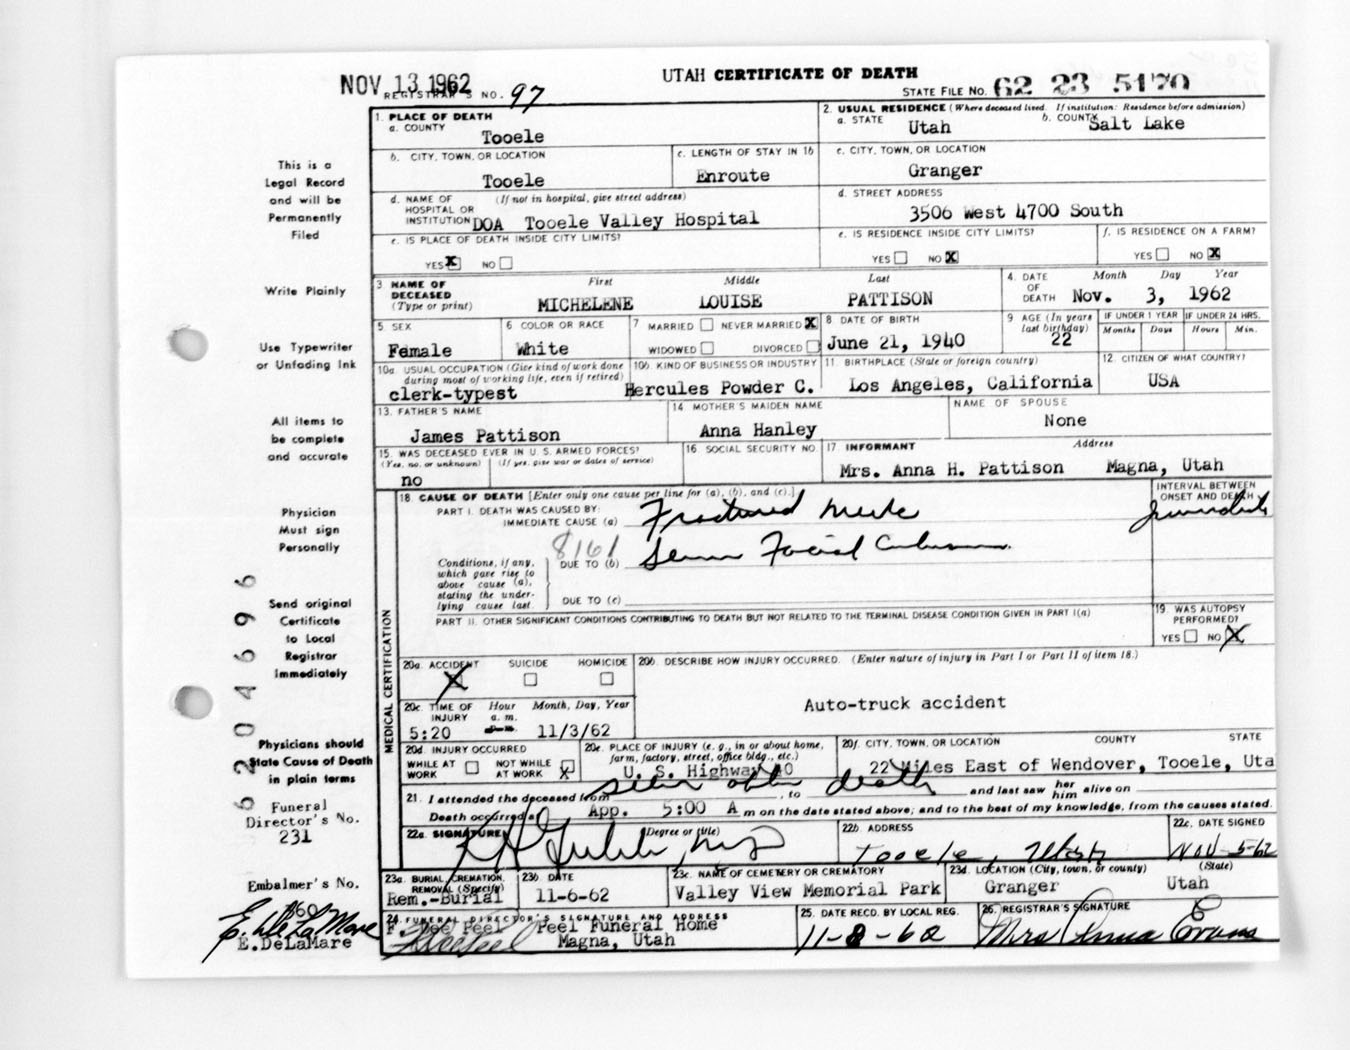 NOV 13 1962
UTAH CERTIFICATE OF DEATH
REGISTRAR'S NO. 97
STATE FILE NO. 62 23 5170
1. PLACE OF DEATH
a. COUNTY
Tooele
2. USUAL RESIDENCE (Where deceased lived. If institution: Residence before admission)
a. STATE Utah b. COUNTY Salt Lake
b. CITY, TOWN, OR LOCATION
Tooele
c. LENGTH OF STAY IN 1b
Enroute
c. CITY, TOWN, OR LOCATION
Granger
d. NAME OF HOSPITAL OR INSTITUTION (If not in hospital, give street address)
DOA Tooele Valley Hospital
d. STREET ADDRESS
3506 West 4700 South
e. IS PLACE OF DEATH INSIDE CITY LIMITS?
YES X NO
e. IS RESIDENCE INSIDE CITY LIMITS?
YES NO X
f. IS RESIDENCE ON A FARM?
YES NO X
3 NAME OF DECEASED (Type or print)
First Middle Last
MICHELENE LOUISE PATTISON
4. DATE OF DEATH Month Day Year
Nov. 3, 1962
5. SEX
Female
6 COLOR OR RACE
White
7 MARRIED NEVER MARRIED X
WIDOWED DIVORCED
8 DATE OF BIRTH
June 21, 1940
9 AGE (In years last birthday)
22
IF UNDER 1 YEAR IF UNDER 24 HRS.
Months Days Hours Min.
10a. USUAL OCCUPATION (Give kind of work done during most of working life, even if retired)
clerk-typest
10b. KIND OF BUSINESS OR INDUSTRY
Hercules Powder C.
11 BIRTHPLACE (State or foreign country)
Los Angeles, California
12. CITIZEN OF WHAT COUNTRY?
USA
13. FATHER'S NAME
James Pattison
14 MOTHER'S MAIDEN NAME
Anna Hanley
NAME OF SPOUSE
None
15. WAS DECEASED EVER IN U. S. ARMED FORCES?
(Yes, no, or unknown) (If yes, give war or dates of service)
no
16 SOCIAL SECURITY NO.
17 INFORMANT Address
Mrs. Anna H. Pattison Magna, Utah
18. CAUSE OF DEATH [Enter only one cause per line for (a), (b), and (c).]
INTERVAL BETWEEN ONSET AND DEATH
PART I. DEATH WAS CAUSED BY:
IMMEDIATE CAUSE (a) Fractured
8161
Conditions, if any, which gave rise to above cause (a), stating the underlying cause last.
DUE TO (b) Facial
DUE TO (c)
PART II. OTHER SIGNIFICANT CONDITIONS CONTRIBUTING TO DEATH BUT NOT RELATED TO THE TERMINAL DISEASE CONDITION GIVEN IN PART I(a)
19. WAS AUTOPSY PERFORMED?
YES NO X
MEDICAL CERTIFICATION
20a. ACCIDENT SUICIDE HOMICIDE
X
20b. DESCRIBE HOW INJURY OCCURRED. (Enter nature of injury in Part I or Part II of item 18.)
Auto-truck accident
20c. TIME OF INJURY Hour Month, Day, Year
5:20 a. m. 11/3/62
20d. INJURY OCCURRED
WHILE AT WORK NOT WHILE AT WORK X
20e. PLACE OF INJURY (e. g., in or about home, farm, factory, street, office bldg., etc.)
U. S. Highway 40
20f. CITY, TOWN, OR LOCATION COUNTY STATE
22 Miles East of Wendover, Tooele, Uta
21. I attended the deceased from seen after death, to and last saw her him alive on
Death occurred at App. 5:00 A m on the date stated above; and to the best of my knowledge, from the causes stated.
22a. SIGNATURE (Degree or title)
22b. ADDRESS
Tooele, Utah
22c. DATE SIGNED
Nov-5-62
23a. BURIAL, CREMATION, REMOVAL (Specify)
Rem.-Burial
23b. DATE
11-6-62
23c. NAME OF CEMETERY OR CREMATORY
Valley View Memorial Park
23d. LOCATION (City, town, or county) (State)
Granger Utah
24. FUNERAL DIRECTOR'S SIGNATURE AND ADDRESS
F. Dee Peel Peel Funeral Home
Magna, Utah
25. DATE RECD. BY LOCAL REG.
11-8-62
26. REGISTRAR'S SIGNATURE
Mrs Anna E Evans
This is a
Legal Record
and will be
Permanently
Filed
Write Plainly
Use Typewriter
or Unfading Ink
All items to
be complete
and accurate
Physician
Must sign
Personally
Send original
Certificate
to Local
Registrar
Immediately
Physicians should
State Cause of Death
in plain terms
Funeral
Director's No.
231
Embalmer's No.
160
E. DeLaMare
E. DeLaMare
6204696